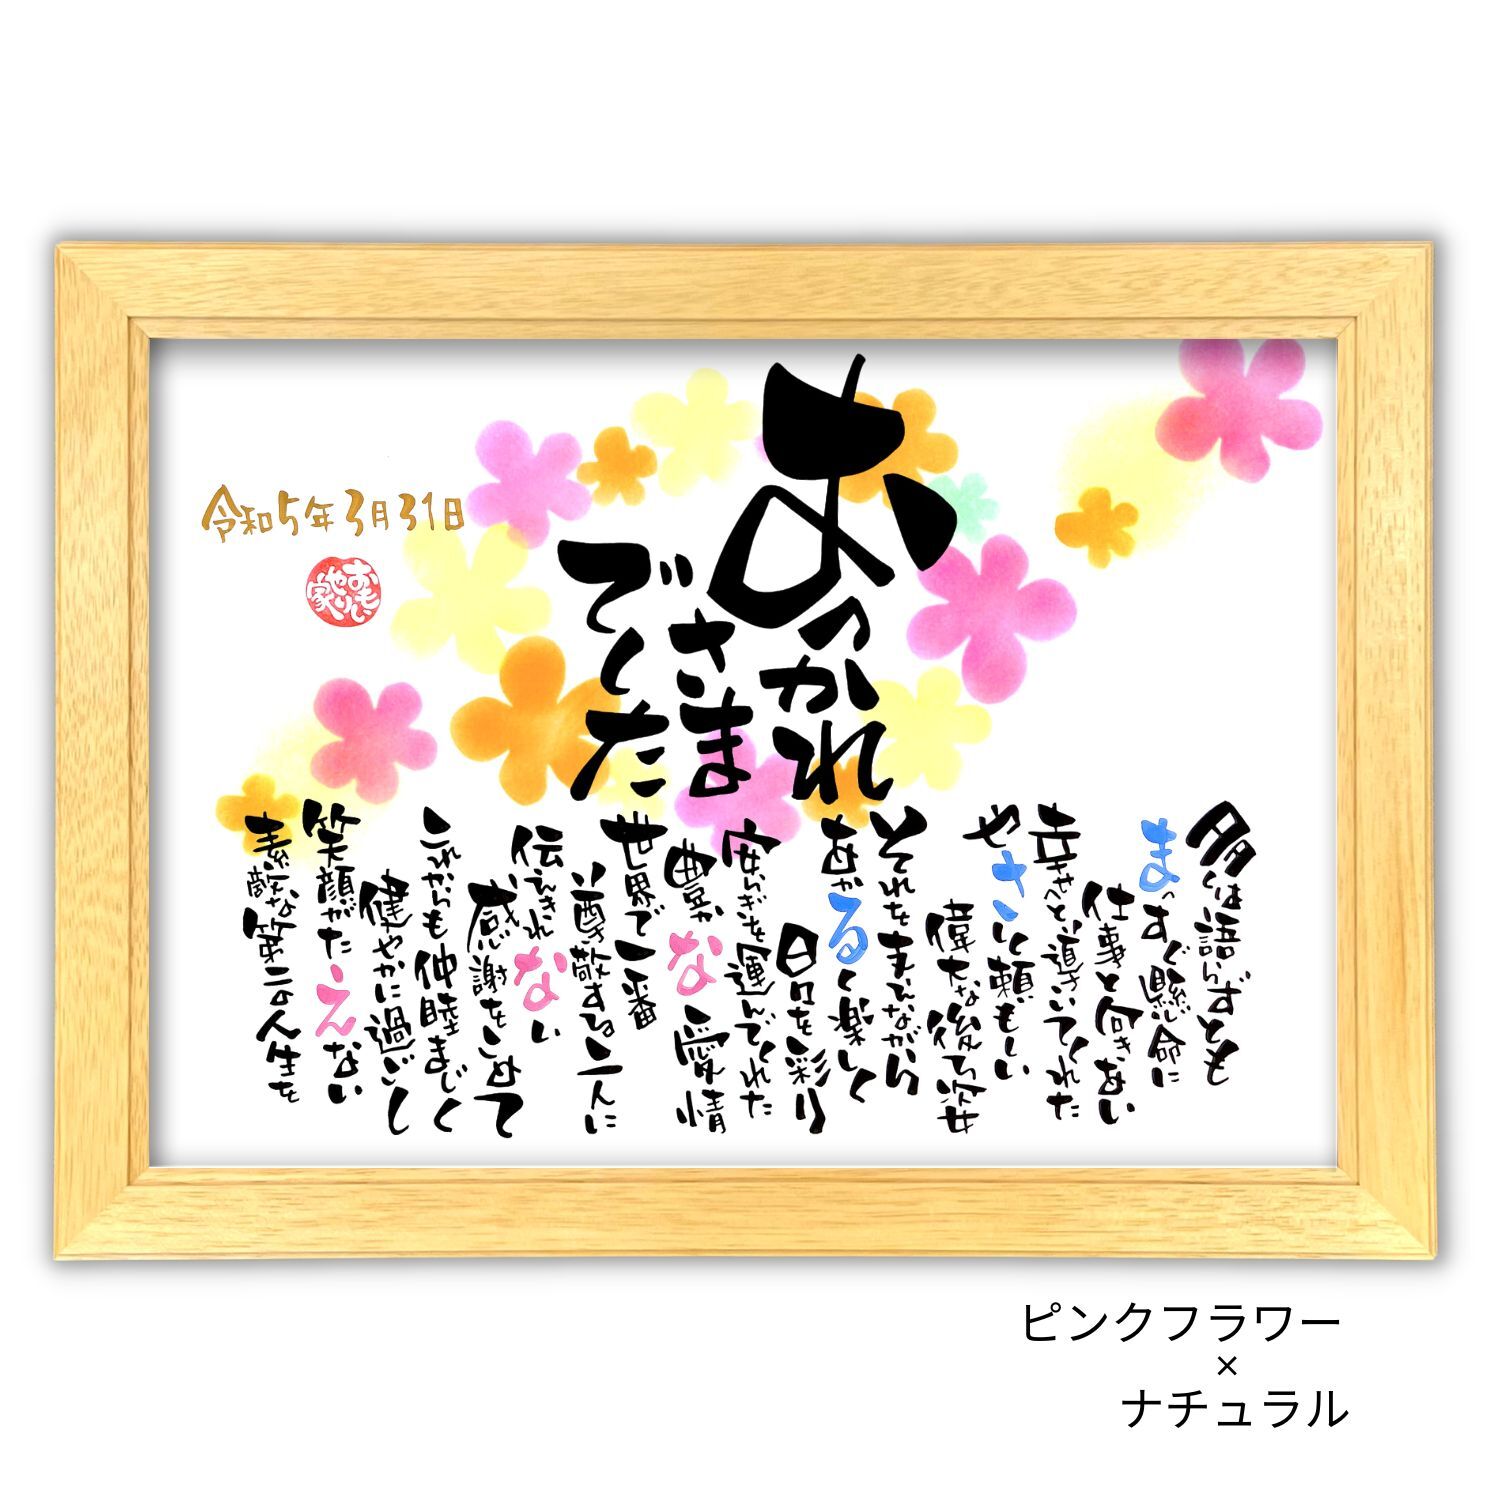 おつかれ
さま
でした
多くは語らずとも
まっすぐ懸命に
仕事と向きあい
幸せへと導いてくれた
やさしく頼もしい
偉大な後ろ姿
それをまねながら
あかるく楽しく
日々を彩り
安らぎを運んでくれた
豊かな愛情
世界で一番
尊敬する二人に
伝えきれない
感謝をこめて
これからも仲睦まじく
健やかに過ごし
笑顔がたえない
素敵な第二の人生を
令和5年3月31日
おもいやり家
ピンクフラワー
×
ナチュラル